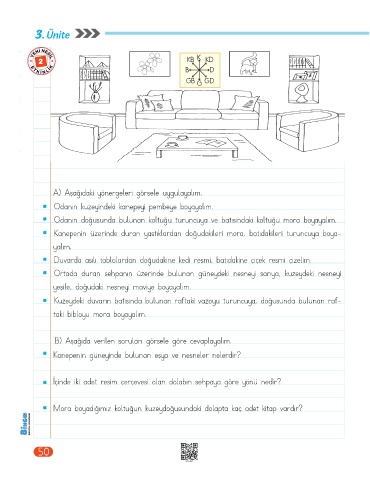 3. Ünite
YENİ NESİL
2
ETKİNLİK
KB K KD
B D
GB G GD
A) Aşağıdaki yönergeleri görsele uygulayalım.
Odanın kuzeyindeki kanepeyi pembeye boyayalım.
Odanın doğusunda bulunan koltuğu turuncuya ve batısındaki koltuğu mora boyayalım.
Kanepenin üzerinde duran yastıklardan doğudakileri mora, batıdakileri turuncuya boya-
yalım.
Duvarda asılı tablolardan doğudakine kedi resmi, batıdakine çiçek resmi çizelim.
Ortada duran sehpanın üzerinde bulunan güneydeki nesneyi sarıya, kuzeydeki nesneyi
yeşile, doğudaki nesneyi maviye boyayalım.
Kuzeydeki duvarın batısında bulunan raftaki vazoyu turuncuya, doğusunda bulunan raf-
taki bibloyu mora boyayalım.
B) Aşağıda verilen soruları görsele göre cevaplayalım.
Kanepenin güneyinde bulunan eşya ve nesneler nelerdir?
İçinde iki adet resim çerçevesi olan dolabın sehpaya göre yönü nedir?
Mora boyadığımız koltuğun kuzeydoğusundaki dolapta kaç adet kitap vardır?
BİNGO
50